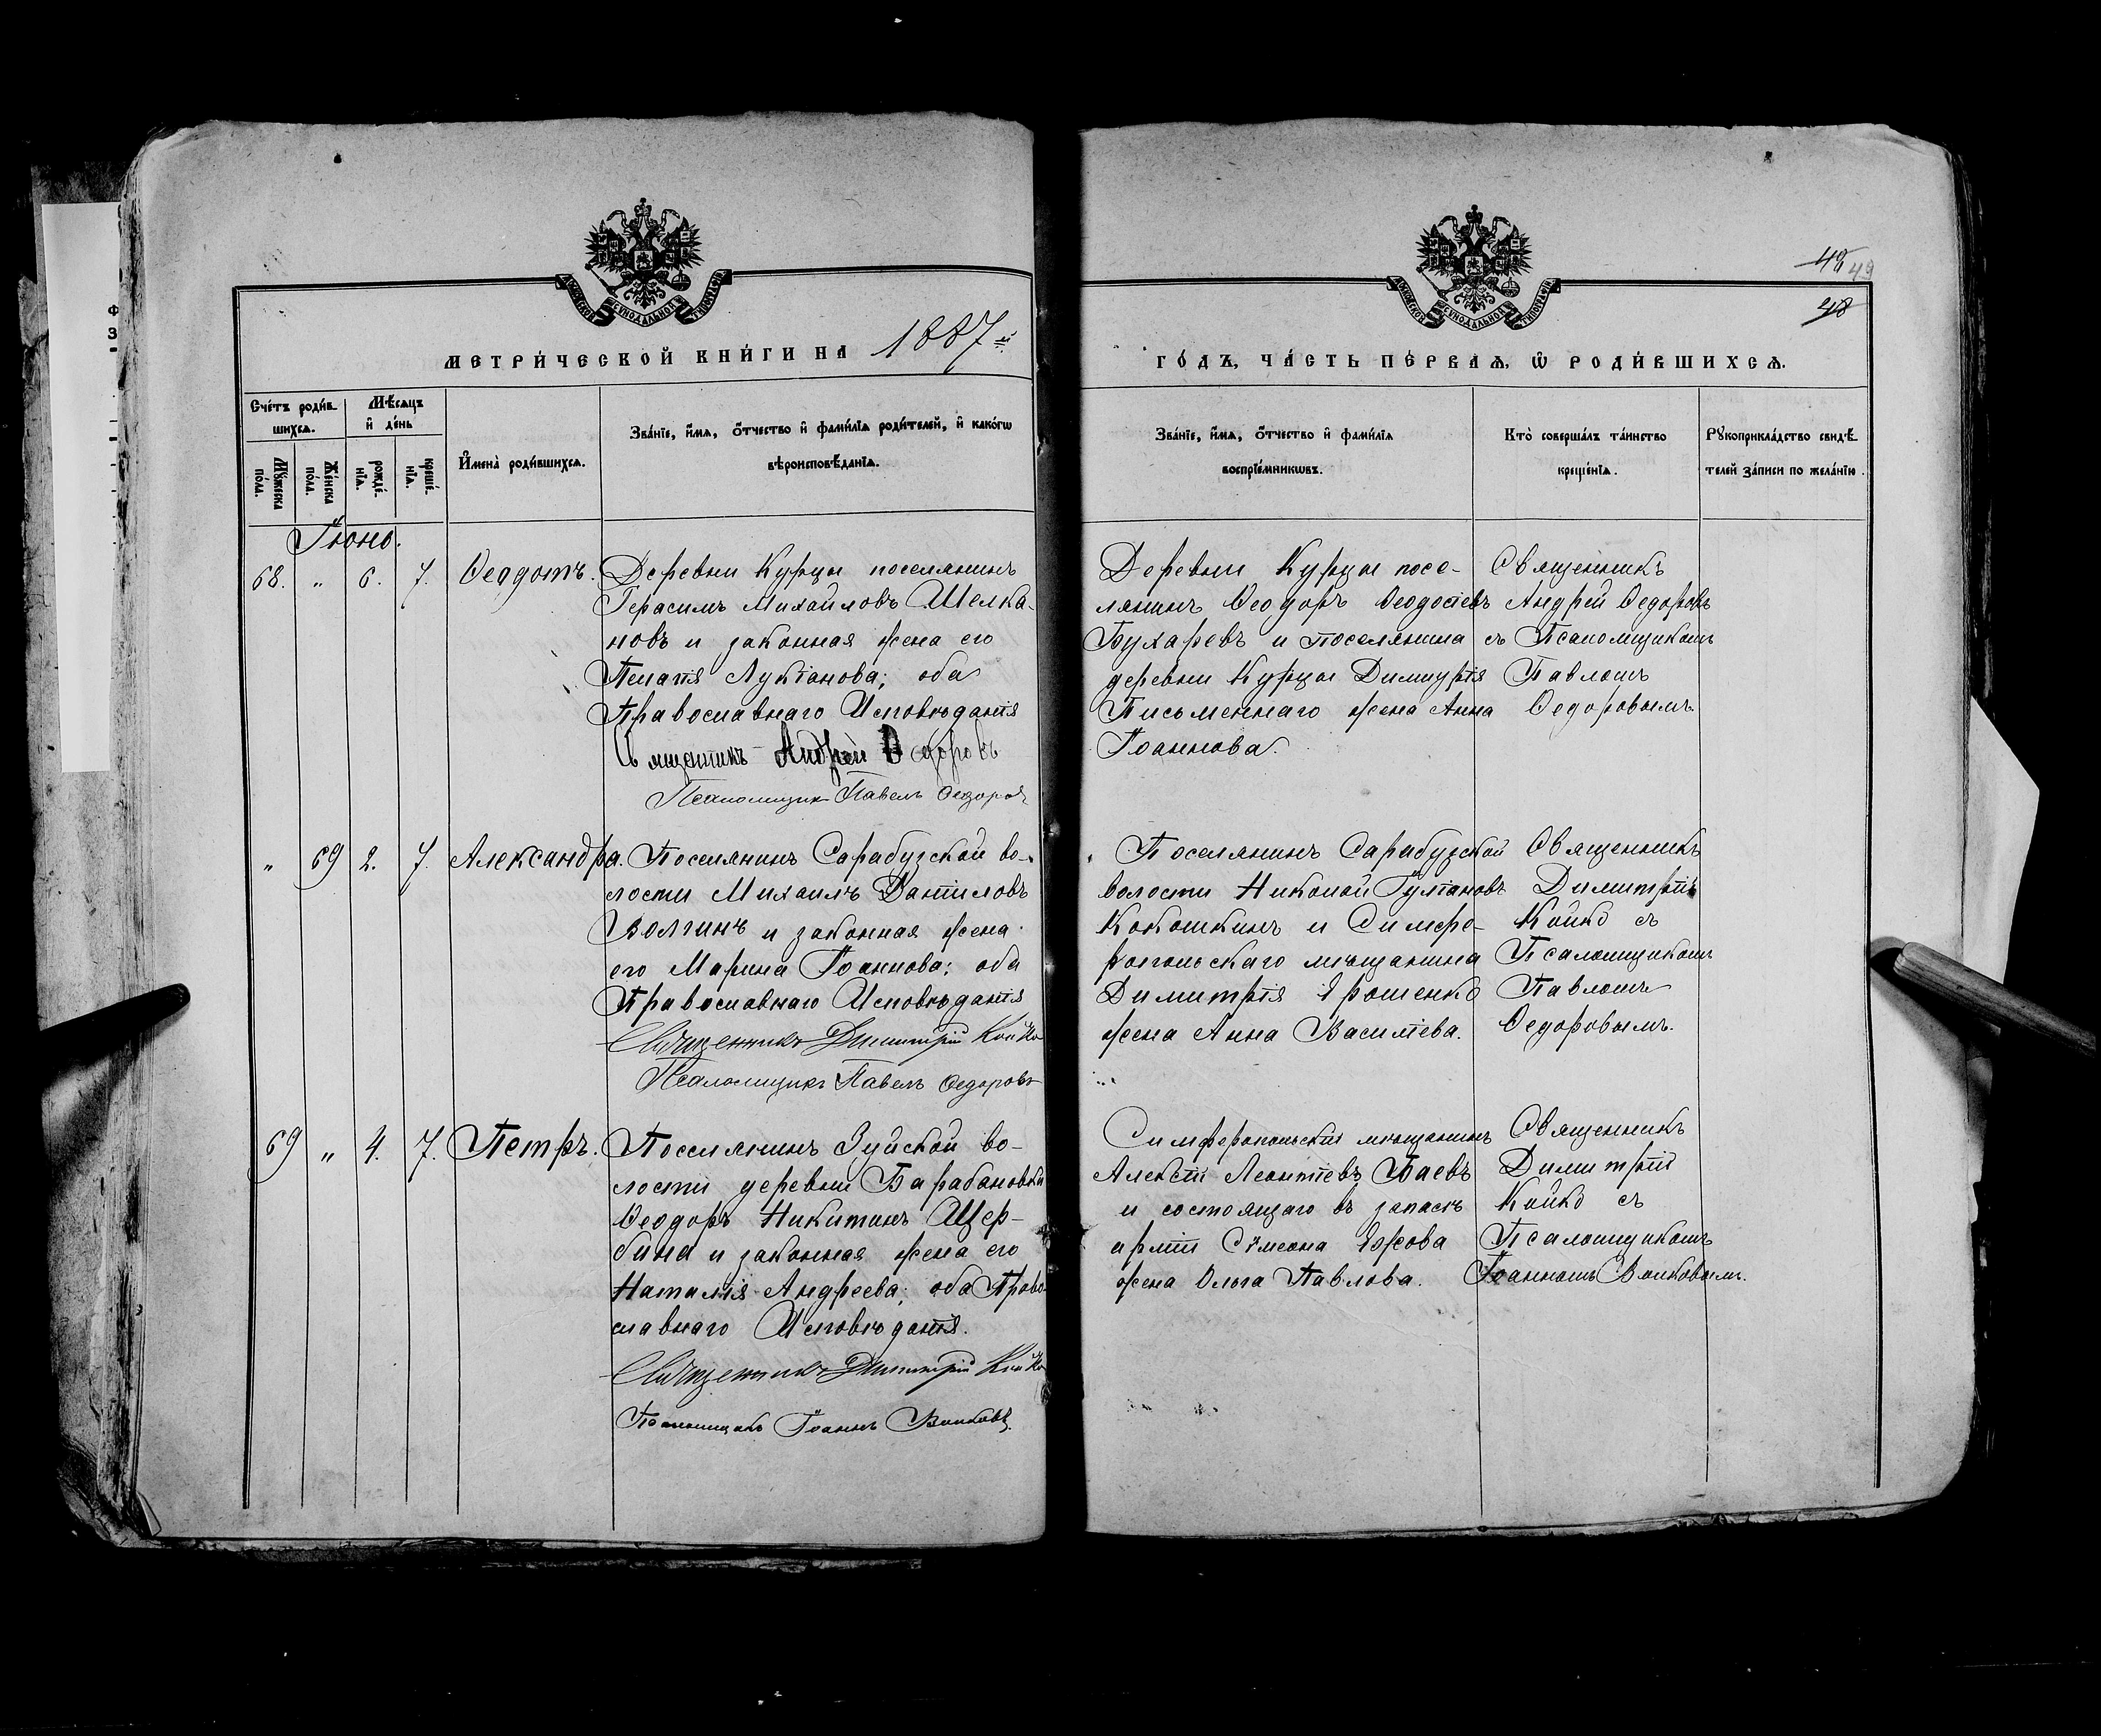 49
49
48
МОСКОВСКОЙ СѴНОДАЛЬНОЙ ТИПОГРАФІИ
МОСКОВСКОЙ СѴНОДАЛЬНОЙ ТИПОГРАФІИ
МЕТРИ́ЧЕСКОЙ КНИ́ГИ НА 1887й
ГО́ДЪ, ЧА́СТЬ ПЕ́РВАѦ, Ѡ РОДИ́ВШИХСѦ.
Сче́тъ роди́в-
шихсѧ.
Мѣ́сѧцъ
и де́нь
Мꙋ́жеска
по́ла.
Же́нска
по́ла.
рожде́-
нїѧ.
креще́-
нїѧ.
Имена̀ роди́вшихсѧ.
Зва́нїе, и́мѧ, о́тчество и фами́лїѧ роди́телей, и како́гѡ
вѣроисповѣ́данїѧ.
Зва́нїе, и́мѧ, о́тчество и фами́лїѧ
воспрїе́мникѡвъ.
Кто̀ соверша́лъ та́инство
креще́нїѧ.
Рꙋкоприкла́дство свидѣ́-
телей за́писи по жела́нїю.
Іюнь.
68. " 6. 7. Ѳеодотъ.
Деревни Курцы поселянинъ
Герасимъ Михайловъ Шелка-
новъ и законная жена его
Пелагія Лукіанова; оба
Православнаго Исповѣданія
Священникъ Андрей Ѳедоровъ
Псаломщикъ Павелъ Ѳедоровъ
Деревни Курцы посе-
лянинъ Ѳеодоръ Ѳеодосіевъ
Бухаревъ и поселянина
деревни Курцы Димитрія
Письменнаго жена Анна
Іоаннова.
Священникъ
Андрей Ѳедоровъ
съ Псаломщикомъ
Павломъ
Ѳедоровымъ.
" 69 2. 7. Александра.
Поселянинъ Сарабузской во-
лости Михаилъ Даніиловъ
Волгинъ и законная жена
его Марина Іоаннова; оба
Православнаго Исповѣданія
Священникъ Димитрій Койко
Псаломщикъ Павелъ Ѳедоровъ
Поселянинъ Сарабузской
волости Николай Гуліановъ
Кокошкинъ и Симфе-
ропольскаго мѣщанина
Димитрія Ярошенко
жена Анна Василіева.
Священникъ
Димитрій
Койко съ
Псаломщикомъ
Павломъ
Ѳедоровымъ.
69 " 4. 7. Петръ.
Поселянинъ Зуйской во-
лости деревни Барабановки
Ѳеодоръ Никитинъ Щер-
бина и законная жена его
Наталія Андреева; оба Право-
славнаго Исповѣданія.
Священникъ Димитрій Койко
Псаломщикъ Іоаннъ Волковъ.
Симферопольскій мѣщанинъ
Алексій Леонтіевъ Баевъ
и состоящаго въ запасѣ
арміи Сѵмеона Ежова
жена Ольга Павлова.
Священникъ
Димитрій
Койко съ
Псаломщикомъ
Іоанномъ Волковымъ.